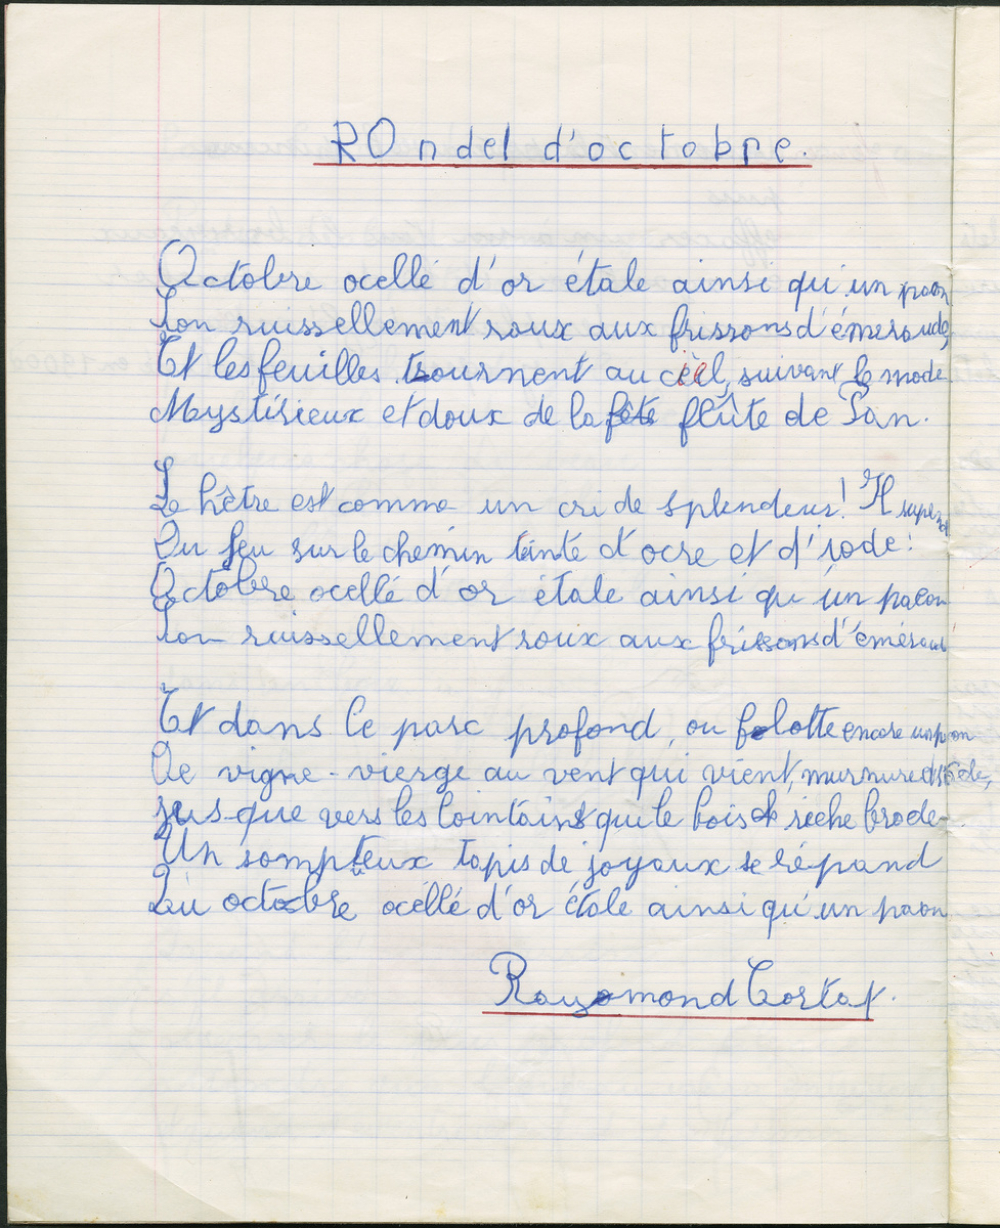 ROndel d'octobre.
Octobre ocellé d'or étale ainsi qu'un paon
Son ruissellement roux aux frissons d'émeraude,
Et les feuilles tournent au ciel, suivant le mode
Mystérieux et doux de la fête flûte de Pan.
Le hêtre est comme un cri de splendeur! Il suspend
Du feu sur le chemin teinté d'ocre et d'iode:
Octobre ocellé d'or étale ainsi qu'un paeon
Son ruissellement roux aux frissons d'émeraude
Et dans le parc profond, ou flotte encore un pan
De vigne-vierge au vent qui vient, murmure et
jus-que vers les lointains que le bois rêche brode
Un somptueux tapis de joyaux se répand
Qu octobre ocellé d'or étale ainsi qu'un paon
Raymond Cortat.